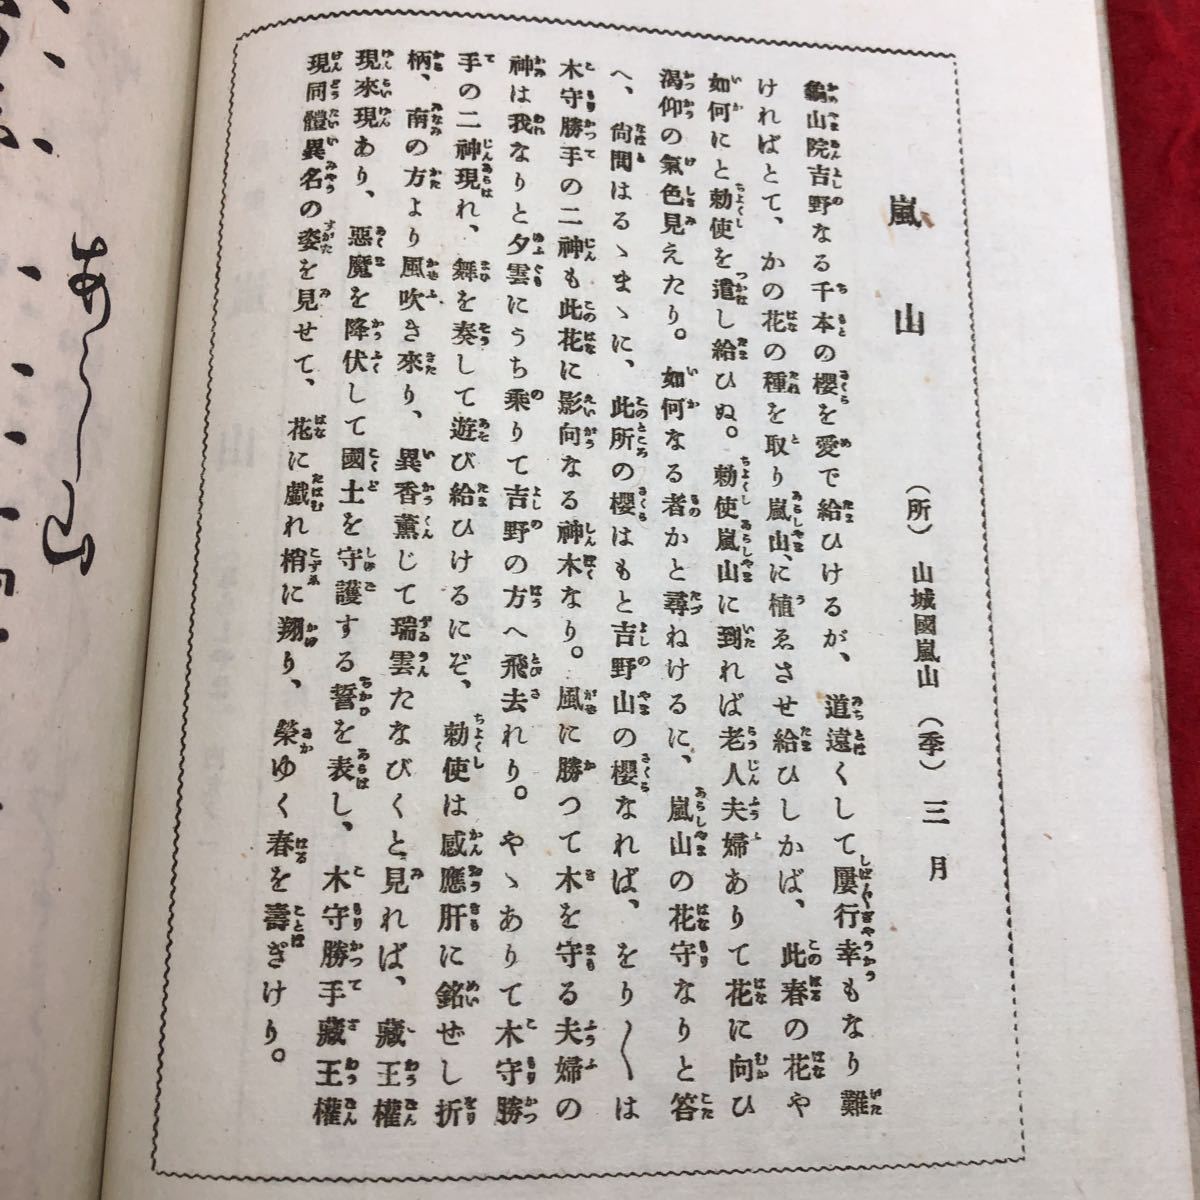 嵐山
(所)山城國嵐山(季)三月
龜山院吉野なる千本の櫻を愛で給ひけるが、道遠くして屢行幸もなり難
ければとて、かの花の種を取り嵐山に植ゑさせ給ひしかば、此春の花や
如何にと勅使を遣し給ひぬ。勅使嵐山に到れば老人夫婦ありて花に向ひ
渴仰の氣色見えたり。如何なる者かと尋ねけるに、嵐山の花守なりと答
へ、尙問はるゝまゝに、此所の櫻はもと吉野山の櫻なれば、をり〳〵は
木守勝手の二神も此花に影向なる神木なり。風に勝つて木を守る夫婦の
神は我なりと夕雲にうち乘りて吉野の方へ飛去れり。やゝありて木守勝
手の二神現れ、舞を奏して遊び給ひけるにぞ、勅使は感應肝に銘ぜし折
柄、南の方より風吹き來り、異香薰じて瑞雲たなびくと見れば、藏王權
現來現あり、惡魔を降伏して國土を守護する誓を表し、木守勝手藏王權
現同體異名の姿を見せて、花に戲れ梢に翔り、榮ゆく春を壽ぎけり。
あらし山